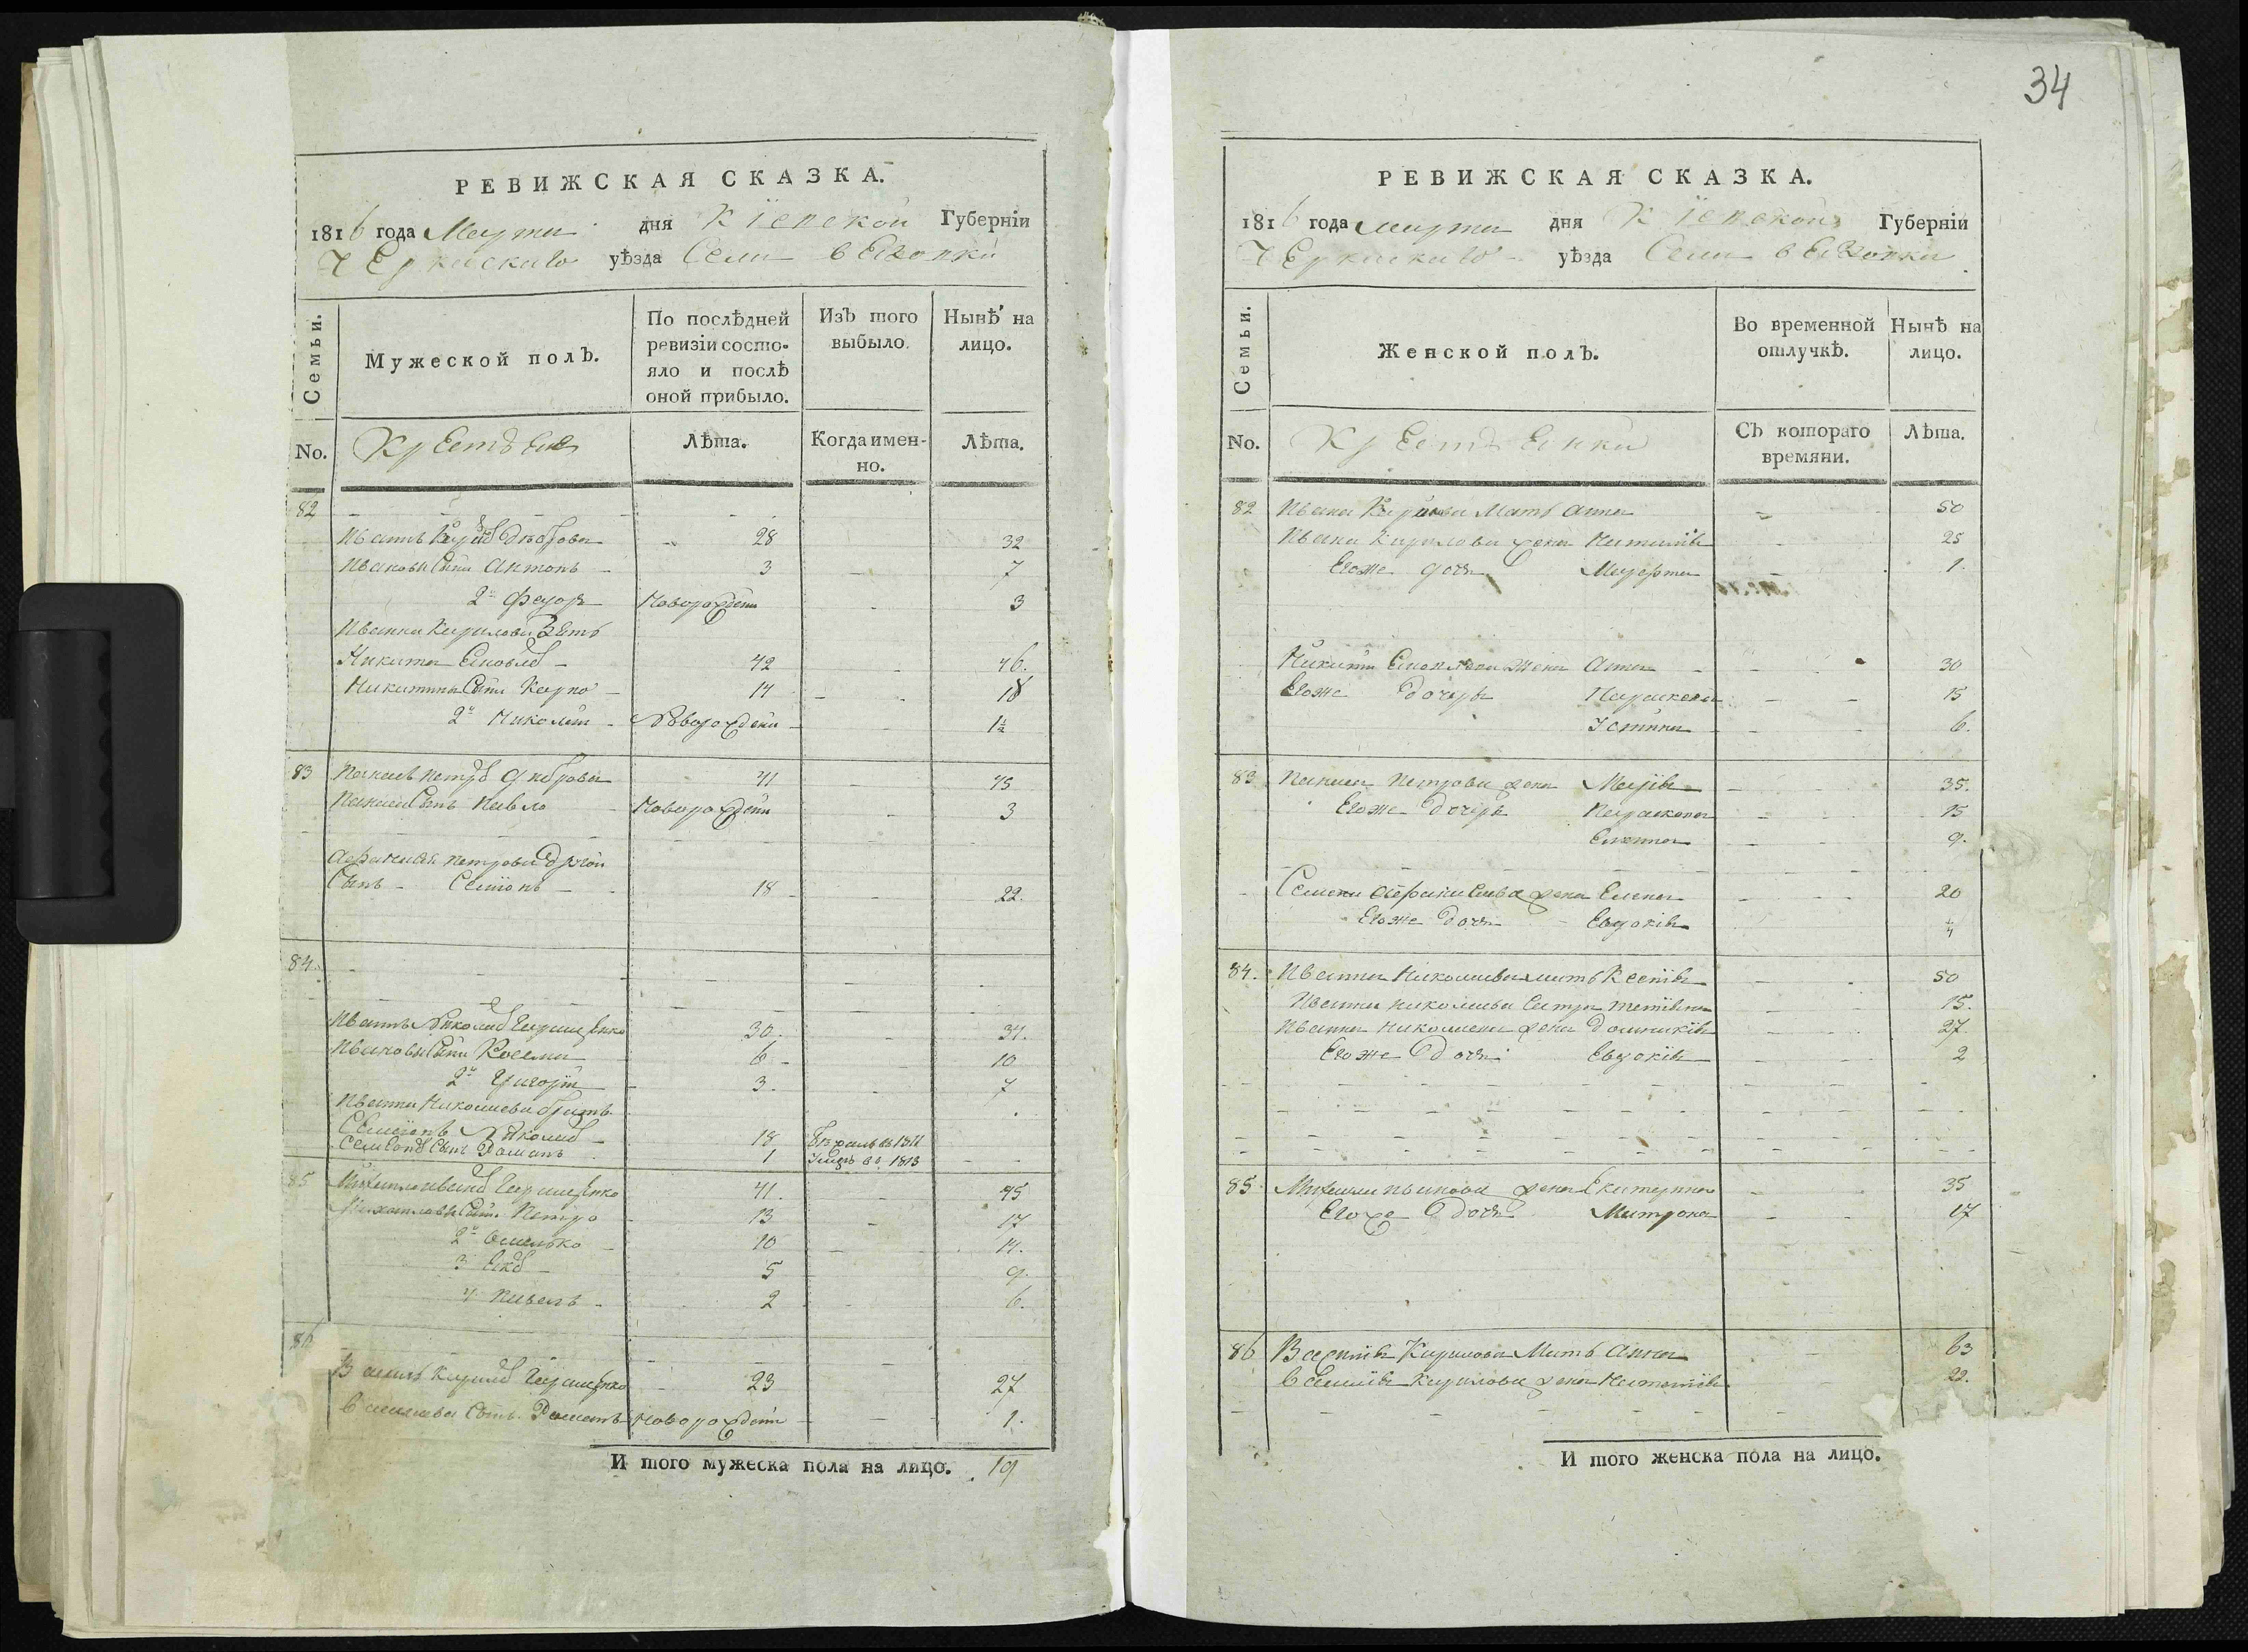 34
РЕВИЖСКАЯ СКАЗКА.
1816 года Марта дня Кіевской Губерніи
Черкаскаго уѣзда Села
Семьи.
Мужеской полъ.
По послѣдней ревизіи состо-
яло и послѣ оной прибыло.
Изъ того выбыло.
Нынѣ на лицо.
No.
Лѣта.
Когда имен-
но.
Лѣта.
82
Иванъ 28 32
Ивановы Сыни Антонъ 3 7
2й Федоръ Новорожденъ 3
Ивана Кирилова Зять
Никита 42 46.
Никитины Сыни Карпо 14 18
2й Николай Новорожденъ 1½
83 Петров 41 45
Сынъ Павло Новорожденъ 3
Петрова другой
Сынъ Семіонъ 18 22.
84.
Иванъ Николаев 30. 34.
Ивановы Сыни Косьма 6 10
2й Григорій 3. 7
Ивана Николаева братъ
Семіонъ Николаев 18 1811
Сынъ Романъ 1 Умеръ въ 1813
85 Михайло Иванов 41. 45
Михайловы Сыни Петро 13 17
2й Омелько 10 14.
3 5 9.
4 Павелъ 2 6.
86
Василь Кирилов 23 27
Сынъ Романъ Новорожденъ 1.
И того мужеска пола на лицо. 19
РЕВИЖСКАЯ СКАЗКА.
1816 года Марта дня Кіевской Губерніи
Черкаскаго уѣзда Села
Семьи.
Женской полъ.
Во временной отлучкѣ.
Нынѣ на лицо.
No.
Съ котораго времяни.
Лѣта.
82 Ивана Кирилова Мать Анна 50
Ивана Кирилова жена Наталія 25
Егоже дочь Марфа 1.
Никиты жена Анна 30
Егоже дочери Параскева 15
Устина 6.
83 Петрова жена Марія 35.
Егоже дочери Параскева 15
9.
Семена жена Елена 20
Егоже дочь Евдокія
84. Ивана Николаева мать Ксенія 50
Ивана Николаева 15.
Ивана Николаева жена Домникія 27
Егоже дочь Евдокія 2
85 Михаила Иванова жена Екатерина 35
Егоже дочь Матрона 17
86 Василія Кирилова Мать Анна 63
Василія Кирилова жена Наталія 22.
И того женска пола на лицо.